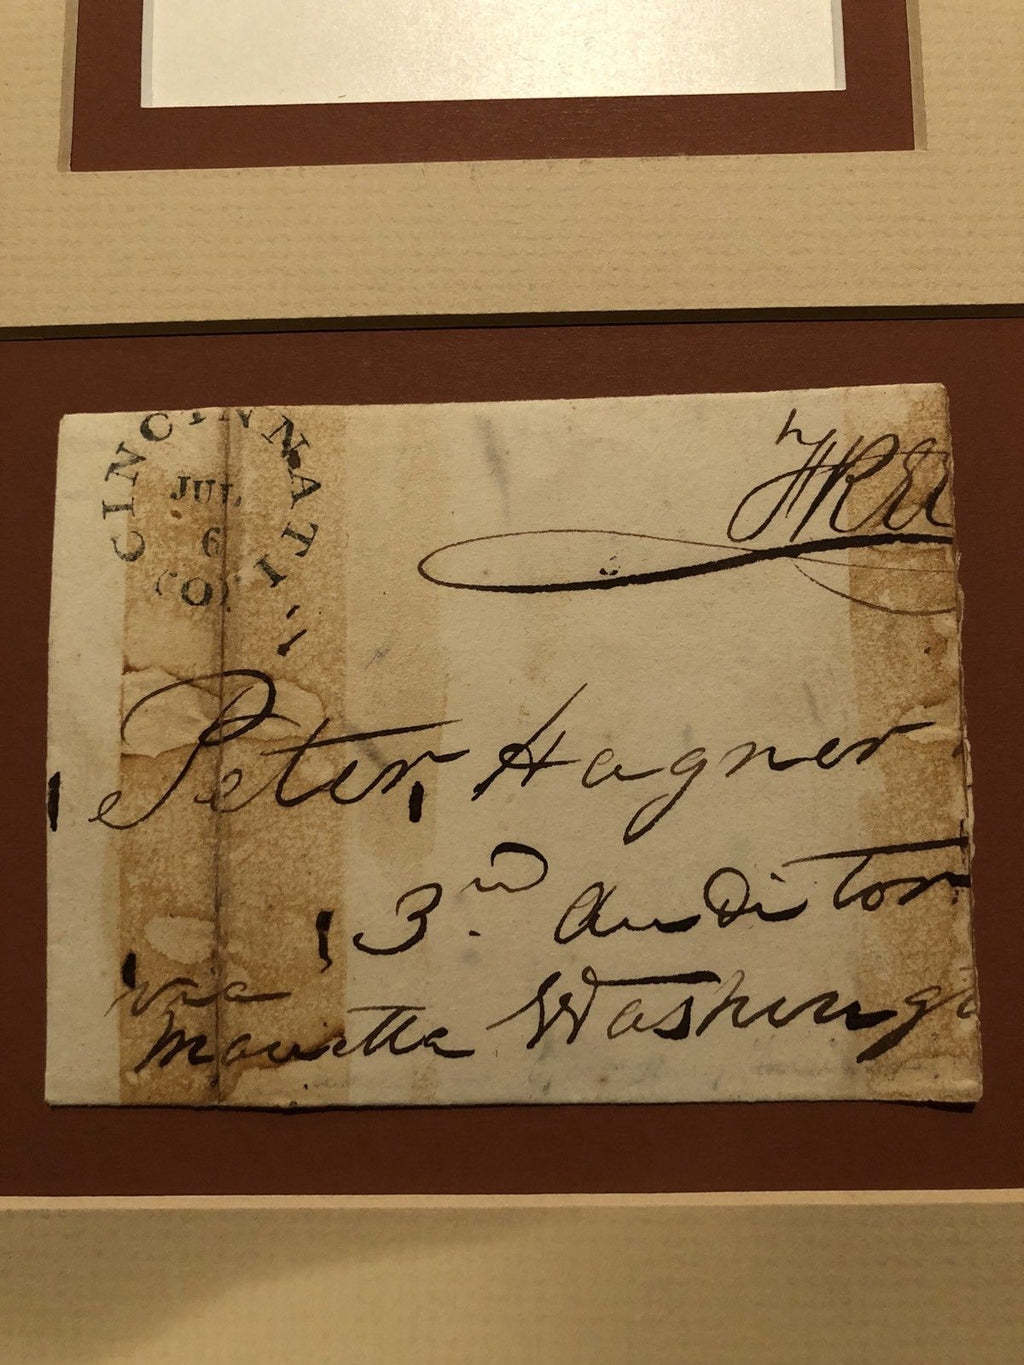 CINCINNATI
JUL
6
(O)
FREE
Peter Hagner
3rd Auditor
via
Marietta Washing